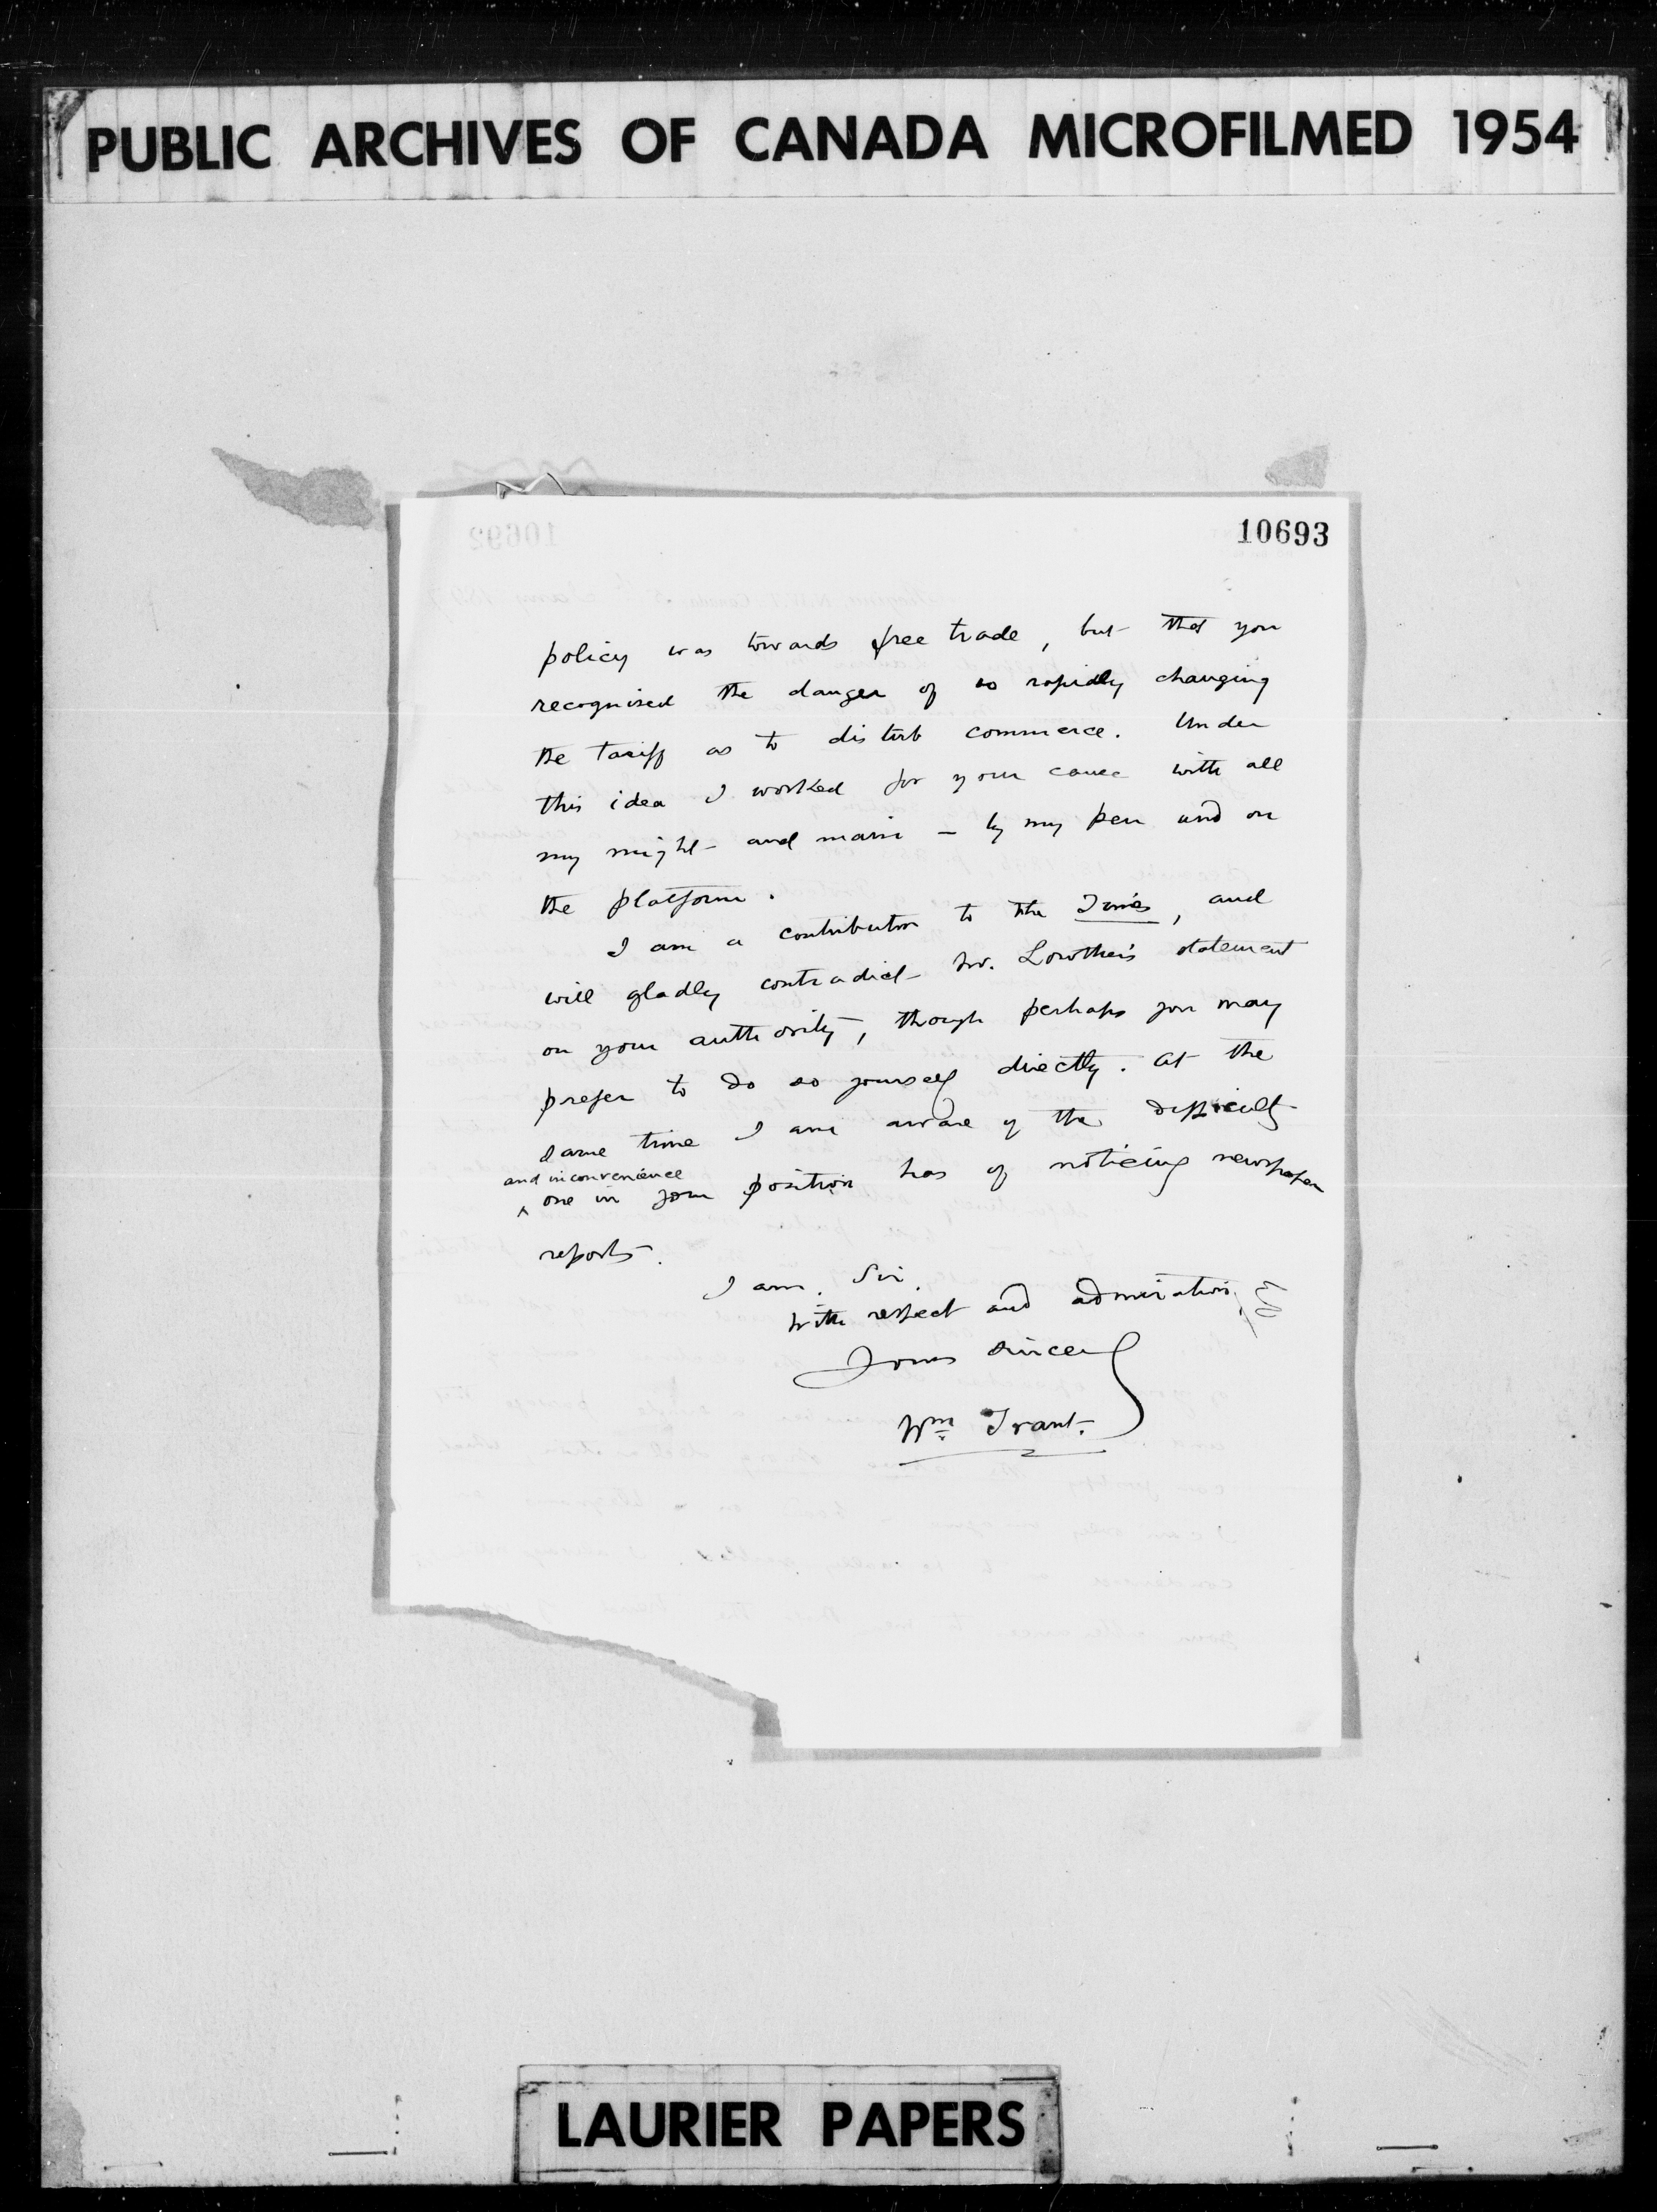 PUBLIC ARCHIVES OF CANADA MICROFILMED 1954
10693
policy was towards free trade, but that you
recognised the danger of so rapidly changing
the tariff as to disturb commerce. Under
this idea I worked for your cause with all
my might and main – by my pen and on
the platform.
I am a contributor to the Times, and
will gladly contradict Mr. Lowther's statement
on your authority, though perhaps you may
prefer to do so yourself directly. At the
same time I am aware of the difficulty
and inconvenience
^ one in your position has of noticing newspaper
reports.
I am, Sir,
With respect and admiration,
Yours sincerely
Wm Trant.
LAURIER PAPERS